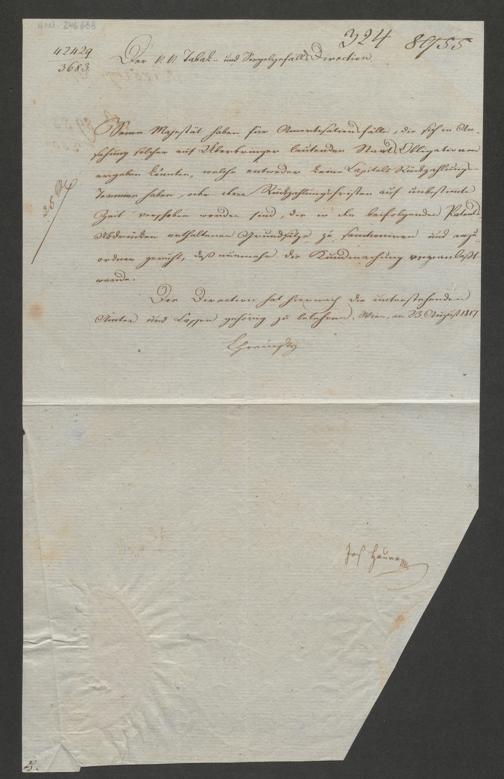 324 89/55
42429
3683
Der K. K. Tabak- und Siegelgefälls Direction.
Seine Majestät haben für Amortisationsfälle, die sich in An-
sehung solcher auf Überbringer lautenden Staats Obligationen
ergeben könnten, welche entweder keine Capitals Rückzahlungs-
Termine haben, oder deren Rückzahlungsfristen auf unbestimmte
Zeit verschoben worden sind, die in den beyfolgenden Patents
Abdrücken enthaltenen Grundsätze zu sanctioniren und anzu-
ordnen geruht, daß nunmehr die Kundmachung veranlaßt
werde.
Die Direction hat hiernach die unterstehenden
Ämter und Cassen gehörig zu belehren. Wien, am 23. August 1817